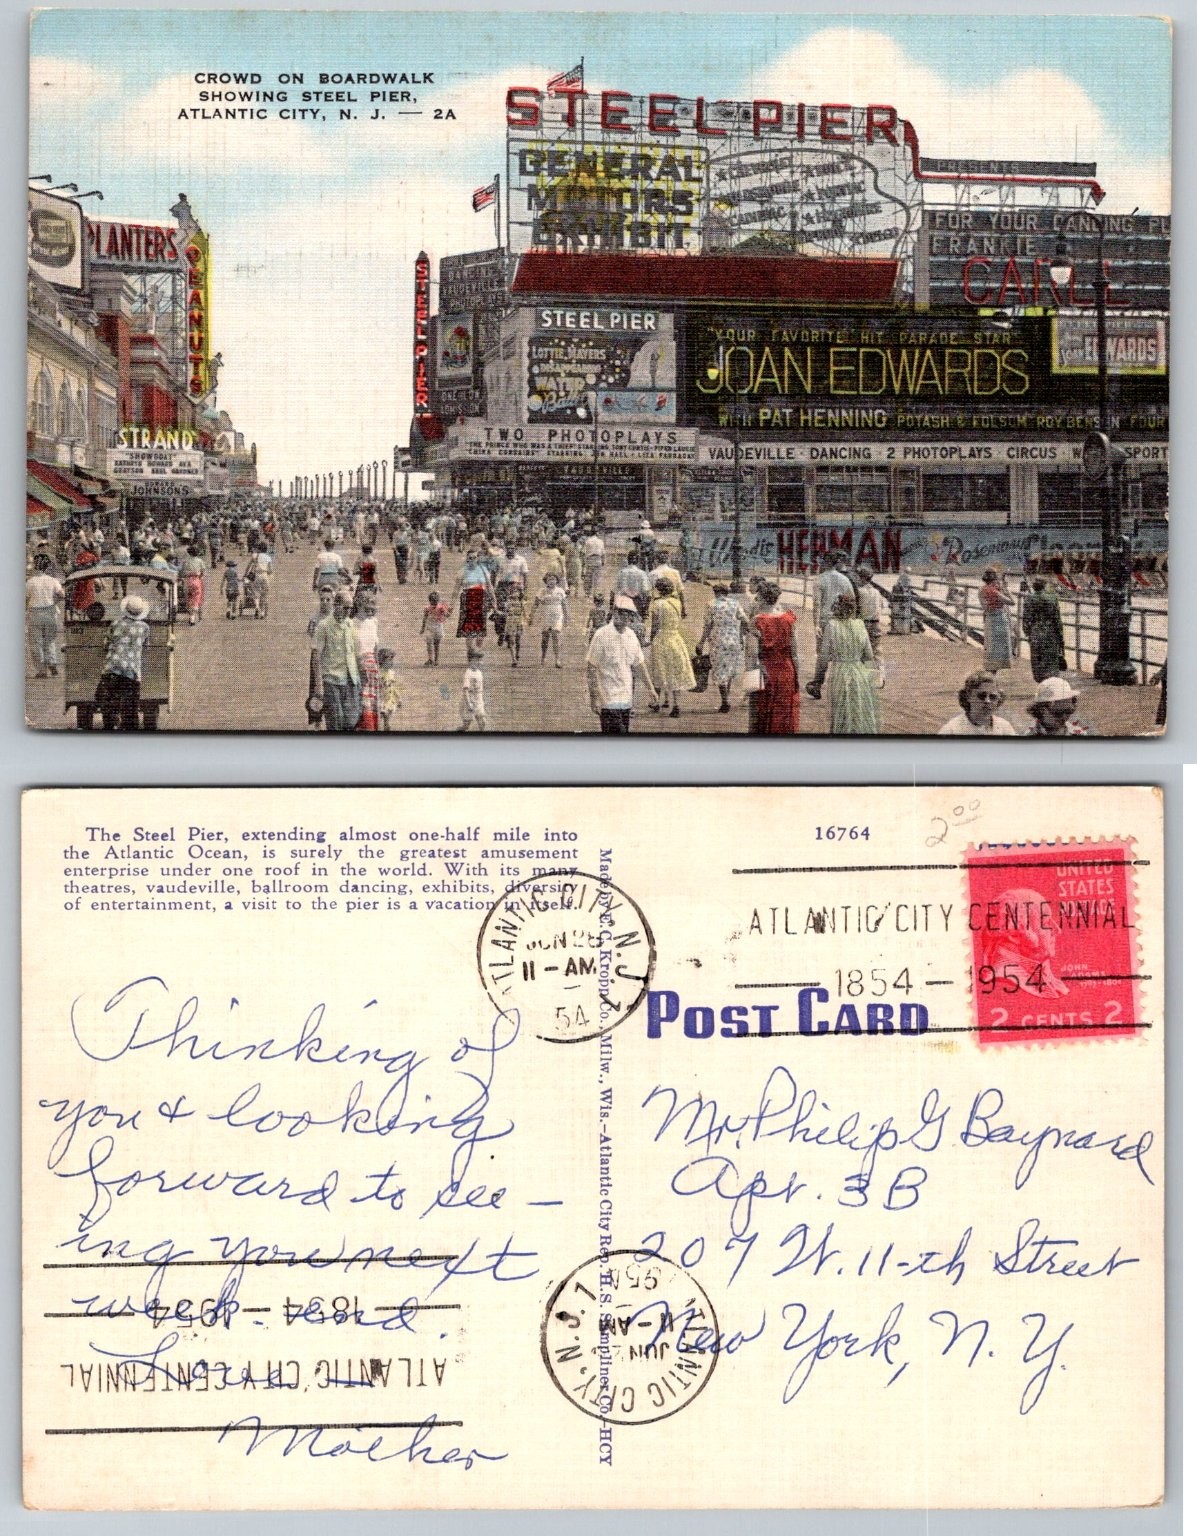 CROWD ON BOARDWALK
SHOWING STEEL PIER,
ATLANTIC CITY, N. J. — 2A
STEEL PIER
GENERAL
MOTORS
EXHIBIT
PRESENTS
FOR YOUR DANCING PL
FRANKIE
CARLE
PLANTERS
PEANUTS
STEEL PIER
STEEL PIER
"YOUR FAVORITE HIT PARADE STAR"
JOAN EDWARDS
JOAN EDWARDS
WITH PAT HENNING POTASH & FOLSOM ROY BENSON FOUR
STRAND
"SHOWBOAT"
JOHNSONS
TWO PHOTOPLAYS
VAUDEVILLE · DANCING · 2 PHOTOPLAYS CIRCUS SPORT
HERMAN
The Steel Pier, extending almost one-half mile into
the Atlantic Ocean, is surely the greatest amusement
enterprise under one roof in the world. With its many
theatres, vaudeville, ballroom dancing, exhibits, diversity
of entertainment, a visit to the pier is a vacation in itself.
16764
2.00
ATLANTIC CITY, N.J. 1
JUN 28
11 - AM
54
ATLANTIC CITY CENTENNIAL
1854 — 1954
UNITED
STATES
JOHN
ADAMS
2 CENTS 2
POST CARD
Made by E. C. Kropp Co., Milw., Wis.—Atlantic City Rep. H. S. Simpliner Co.—HCY
Thinking of
you & looking
forward to see -
ing you next
week-end.
Love
Mother
Mr. Philip G Baynard
Apt. 3B
207 W. 11-th Street
New York, N. Y.
1854 — 1954
ATLANTIC CITY CENTENNIAL
ATLANTIC CITY, N.J. 1
JUN
11 - AM